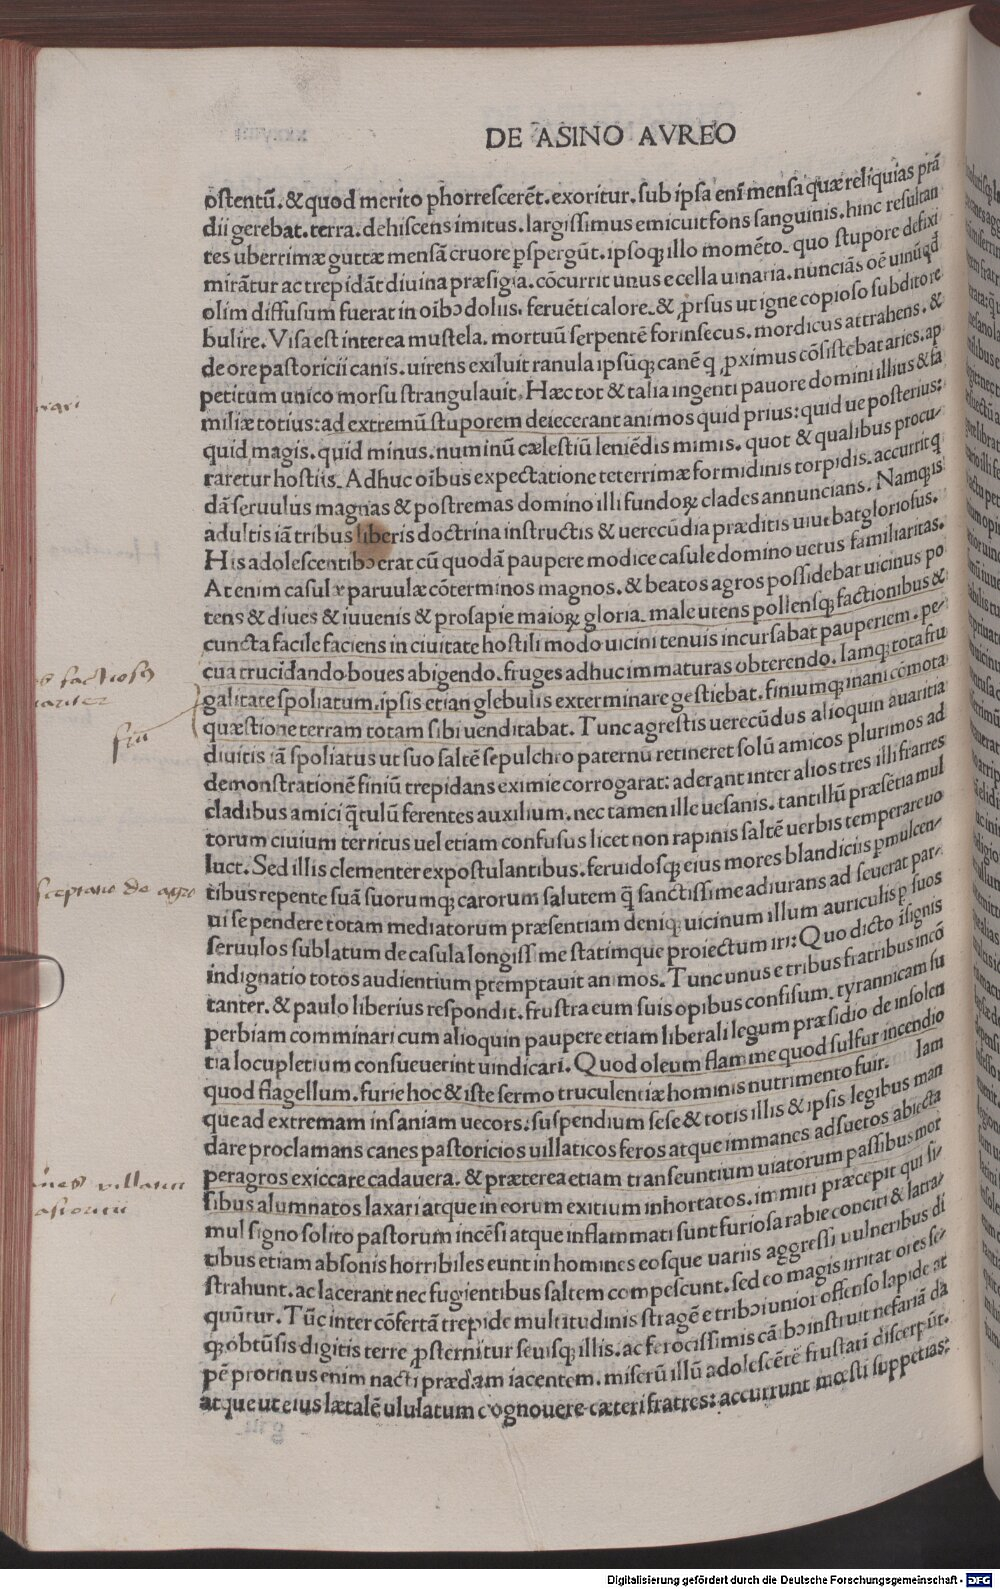 DE ASINO AVREO
ostentū. & quod merito phorrescerēt. exoritur. sub ipsa enī mensa quæ reliquias prā
dii gerebat. terra. dehiscens imitus. largissimus emicuit fons sanguinis. hinc resultan
tes uberrimæ guttæ mensā cruore pspergūt. ipsoq; illo momēto. quo stupore defixi
mirātur ac trepidāt diuina præsigia. cōcurrit unus e cella uinaria. nunciās oē uinū qd̄
olim diffusum fuerat in oībɔ doliis. feruēti calore. & ꝓrsus ut igne copioso subdito re
bulire. Visa est interea mustela. mortuū serpentē forinsecus. mordicus attrahens. &
de ore pastoricii canis. uirens exiluit ranula ipsūq; canē q ꝓximus cōsistebat aries. ap
petitum unico morsu strangulauit. Hæc tot & talia ingenti pauore domini illius & fa
miliæ totius: ad extremū stuporem deiecerant animos quid prius: quid ue posterius:
quid magis. quid minus. numinū cælestiū leniēdis mimis. quot & qualibus procu/
raretur hostiis. Adhuc oībus expectatione teterrimæ formidinis torpidis. accurrit q
dā seruulus magnas & postremas domino illi fundoꝝ clades annuncians. Namq; is
adultis iā tribus liberis doctrina instructis & uerecūdia præditis uiuebat gloriosus.
His adolescentibɔ erat cū quodā paupere modice casule domino uetus familiaritas.
At enim casulæ paruulæ cōterminos magnos. & beatos agros possidebat uicinus po
tens & diues & iuuenis & prosapie maioꝝ gloria. male utens pollensq; factionibus &
cuncta facile faciens in ciuitate hostili modo uicini tenuis incursabat pauperiem. pe/
cua trucidando. boues abigendo. fruges adhuc immaturas obterendo. Iamq; tota fru
galitate spoliatum. ipsis etian glebulis exterminare gestiebat. finiumq; inani cōmota
quæstione terram totam sibi uenditabat. Tunc agrestis uerecūdus alioquin auaritia
diuitis iā spoliatus ut suo saltē sepulchro paternū retineret solū amicos plurimos ad
demonstrationē finiū trepidans eximie corrogarat: aderant inter alios tres illi fratres
cladibus amici q̄tulū ferentes auxilium. nec tamen ille uesanis. tantillū præsētia mul
torum ciuium territus uel etiam confusus licet non rapinis saltē uerbis temperare uo
luct. Sed illis clementer expostulantibus. feruidosq; eius mores blandiciis pmulcen/
tibus repente suā suorumq; carorum salutem q̄ sanctissime adiurans ad seuerat par/
ui se pendere totam mediatorum præsentiam deniq; uicinum illum auriculis p suos
seruulos sublatum de casula longissime statimque proiectum iri: Quo dicto īsignis
indignatio totos audientium ptemptauit animos. Tunc unus e tribus fratribus incō
tanter. & paulo liberius respondit. frustra eum suis opibus confisum. tyrannicam su
perbiam comminari cum alioquin paupere etiam liberali legum præsidio de insolen
tia locupletium consueuerint uindicari. Quod oleum flamme quod sulfur incendio
quod flagellum. furie hoc & iste sermo truculentiæ hominis nutrimento fuit. Iam
que ad extremam insaniam uecors: suspendium sese & totis illis & ipsis legibus man
dare proclamans canes pastoricios uillaticos feros atque immanes adsuetos abiecta
peragros exiccare cadauera. & præterea etiam transeuntium uiatorum passibus mor
sibus alumnatos laxari atque in eorum exitium inhortatos. immiti præcepit qui si/
mul signo solito pastorum incēsi atque inflammati sunt furiosa rabie conciti & latra/
tibus etiam absonis horribiles eunt in homines eosque uariis aggressi uulneribus di
strahunt. ac lacerant nec fugientibus saltem compescunt. sed eo magis irritatiores se/
quūtur. Tūc inter cōfertā trepide multitudinis stragē e tribɔ iunior offenso lapide at
q; obtūsis digitis terre ꝓsternitur seuisq; illis. ac ferocissimis cāibɔ instruit nefariā da
pē protinus enim nacti prædam iacentem. miserū illū adolescētē frustatī discerpūt.
atque ut eius lætalē ululatum cognouere cæteri fratres: accurrunt mœsti suppetias:
fiu
Digitalisierung gefördert durch die Deutsche Forschungsgemeinschaft - DFG